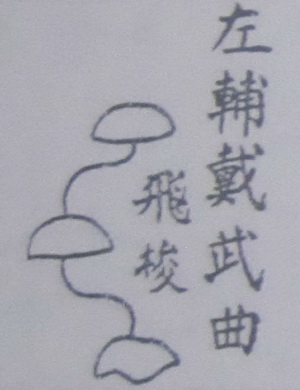 左輔戴武曲
飛梭